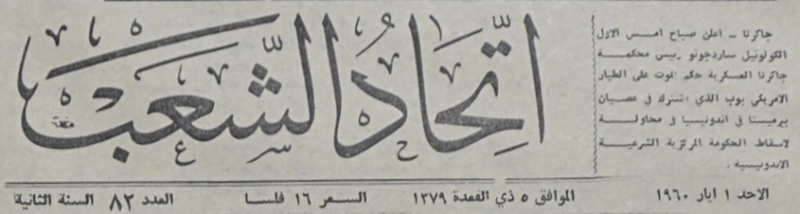 اتحاد الشعب
جاكرتا – اعلن صباح امس الاول
الكولونيل ساردجونو رئيس محكمة
جاكرتا العسكرية حكم الموت على الطيار
الامريكي بوب الذي اشترك في عصيان
بيرميستا في اندونيسيا في محاولة
لاسقاط الحكومة المركزية الشرعية
الاندونيسية .
الاحد ١ ايار ١٩٦٠ الموافق ٥ ذي القعدة ١٣٧٩ السعر ١٦ فلسا العدد ٨٢ السنة الثانية